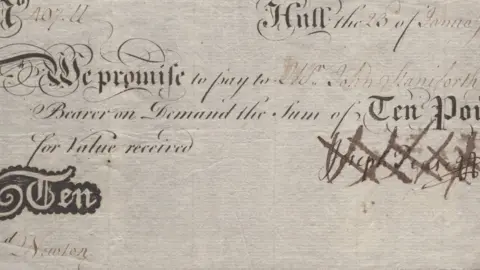 No 407.11 Hull the 25 of January
We promise to pay to Mr. John Staniforth
Bearer on Demand the Sum of Ten Pou
for Value received
Ten
d Newton